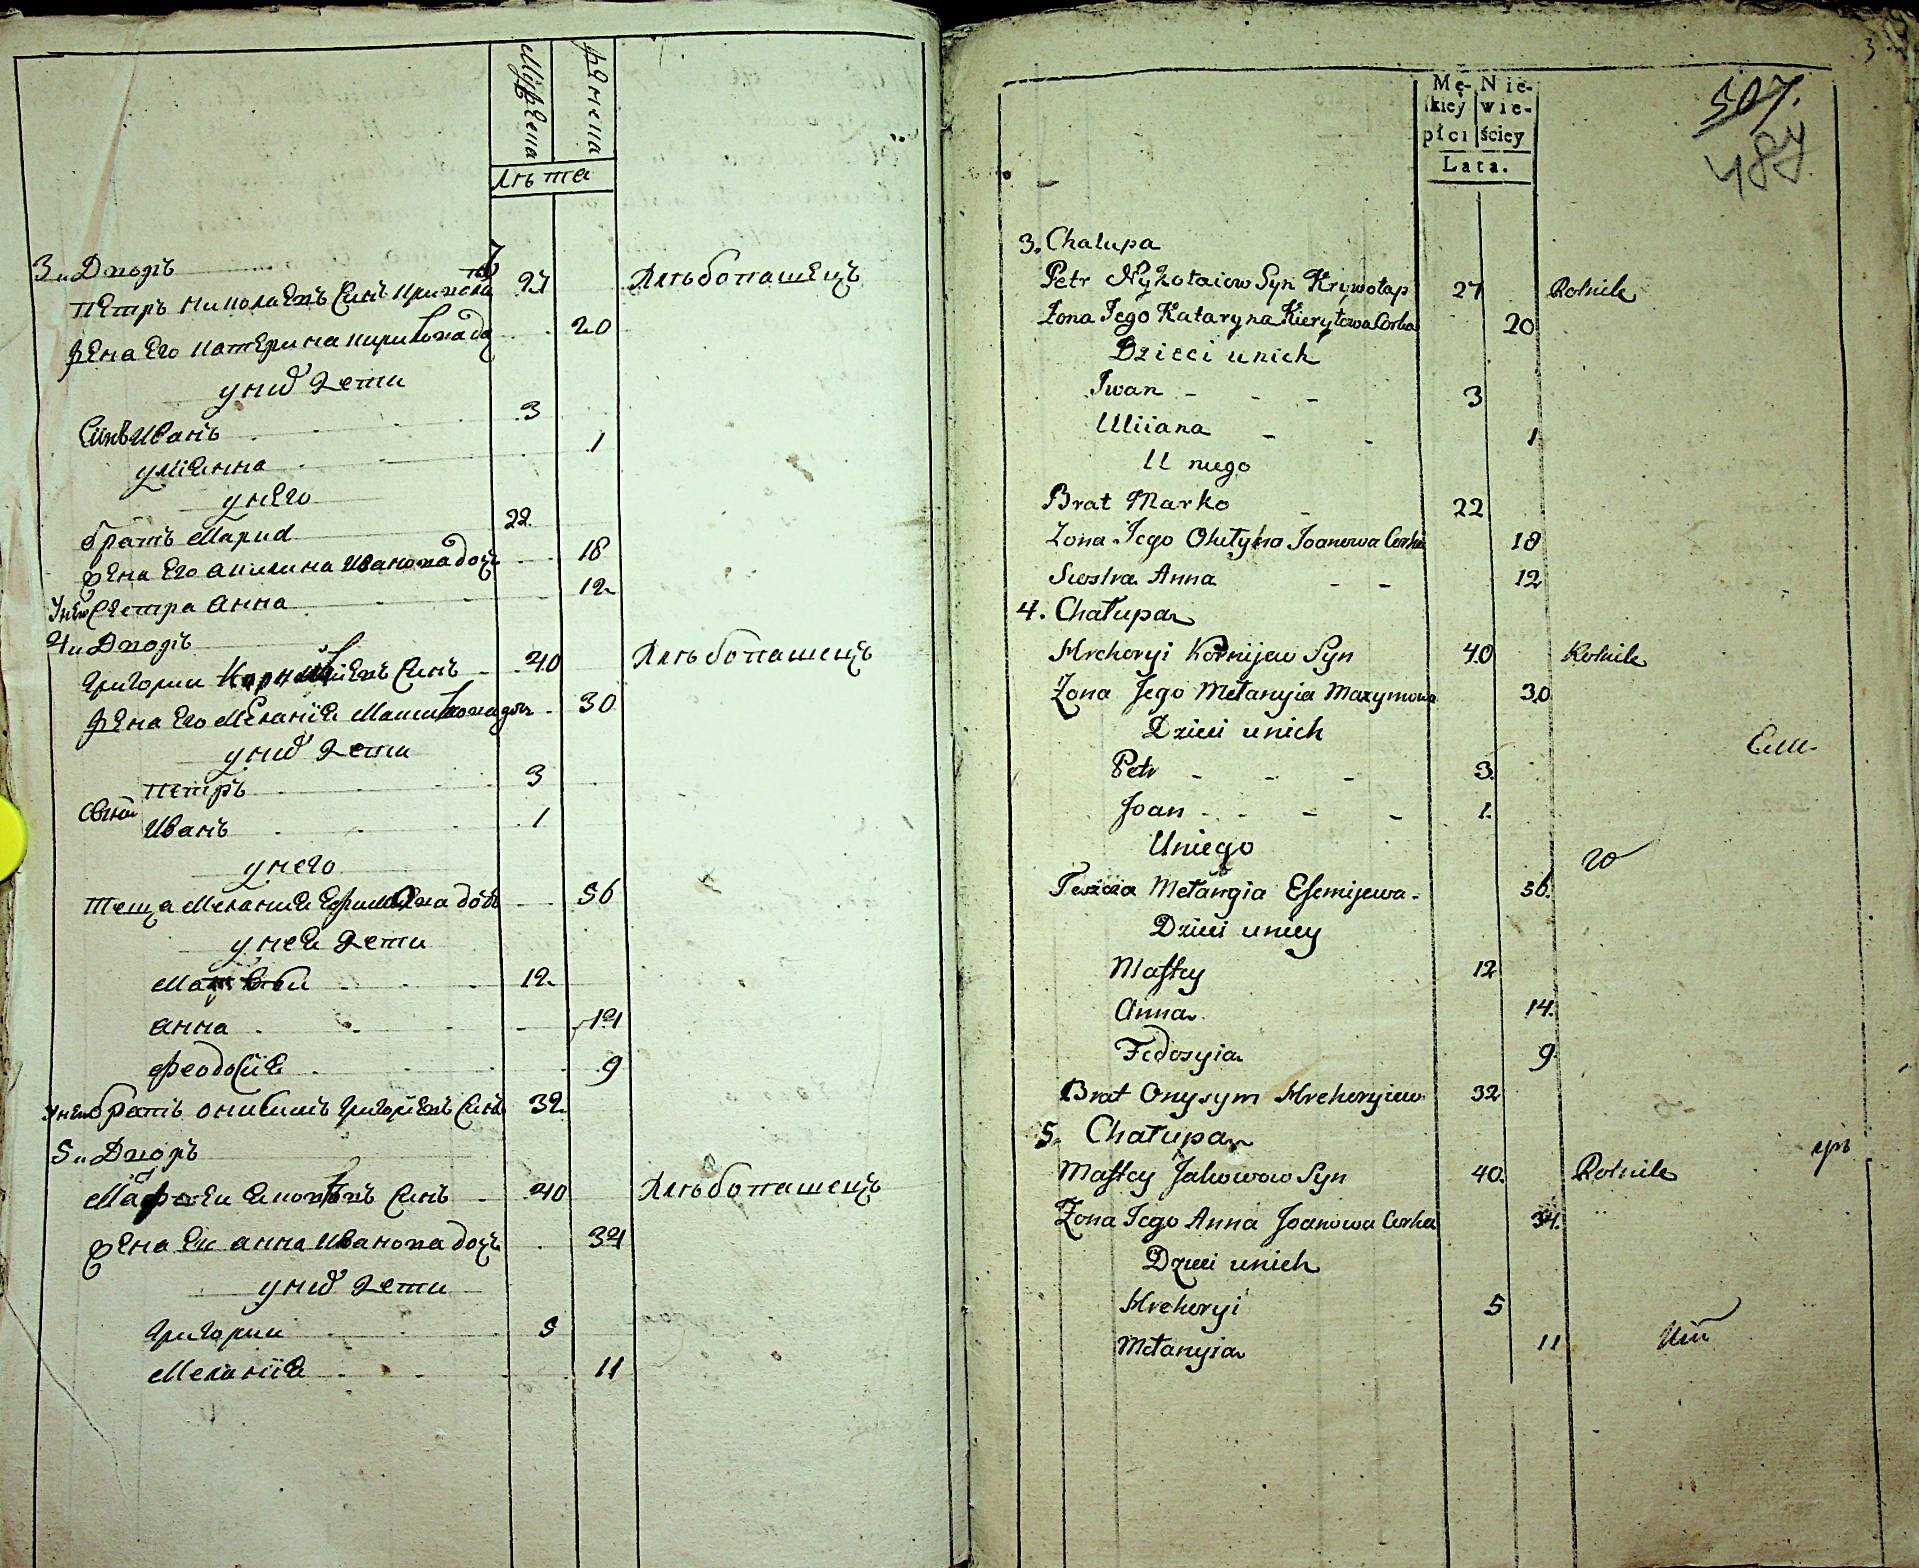 Мужеска
Женска
Лѣта
3й Дворъ
Петръ Николаевъ Синъ Кривота
27
Хлѣбопашецъ
Жена Его Катерина Кирилова до
20
у них дети
Синъ Иванъ
3
улиянна
1
у нЕго
братъ Марко
22
жена Его Акилина Ивановна доч
18
у нЕго Сестра Анна
12
4й Дворъ
Григории Корнѣевъ Синъ
40
Хлѣбопашецъ
жена Его Меланія Максимова доч
30
у них дети
Петръ
3
Сыны
Иванъ
1
у него
Теща Меланія
56
у неи дети
Матвѣи
12
анна
14
Феодосія
9
у него братъ Онисимъ Григориевъ Синъ
32
5й Дворъ
Синъ
40
Хлѣбопашецъ
жена Ег анна Ивановна доч
34
у них дети
Григории
5
Меланія
11
3
Mę- Nie-
skiey wie-
płci ściey
Lata.
507.
487
3. Chałupa
Petr Nykołaiow Syn Krywotap 27 Rolnik
Zona Jego Kataryna Kieryłowa Corka 20
Dzieci u nich
Iwan - - - 3
Uliiana - - 1
U niego
Brat Marko - 22
Zona Jego Okułyna Joanowa Corka 18
Siestra Anna - - 12
4. Chałupa
Hrehoryi Kornijew Syn 40 Rolnik
Zona Jego Mełanyia Maxymowa 30
Dzieci u nich
Petr - - - 3
Joan - - - - 1.
U niego
Teszcza Mełanyia Efemijewa - 56.
Dzieci u niey
Matfey 12
Anna 14.
Fedosyia 9
Brat Onysym Hrehoryiew 32
5. Chałupa
Matfey Jakowow Syn 40. Rolnik
Zona Jego Anna Joanowa Corka 34.
Dzieci u nich
Hrehoryi 5
Mełanyia 11